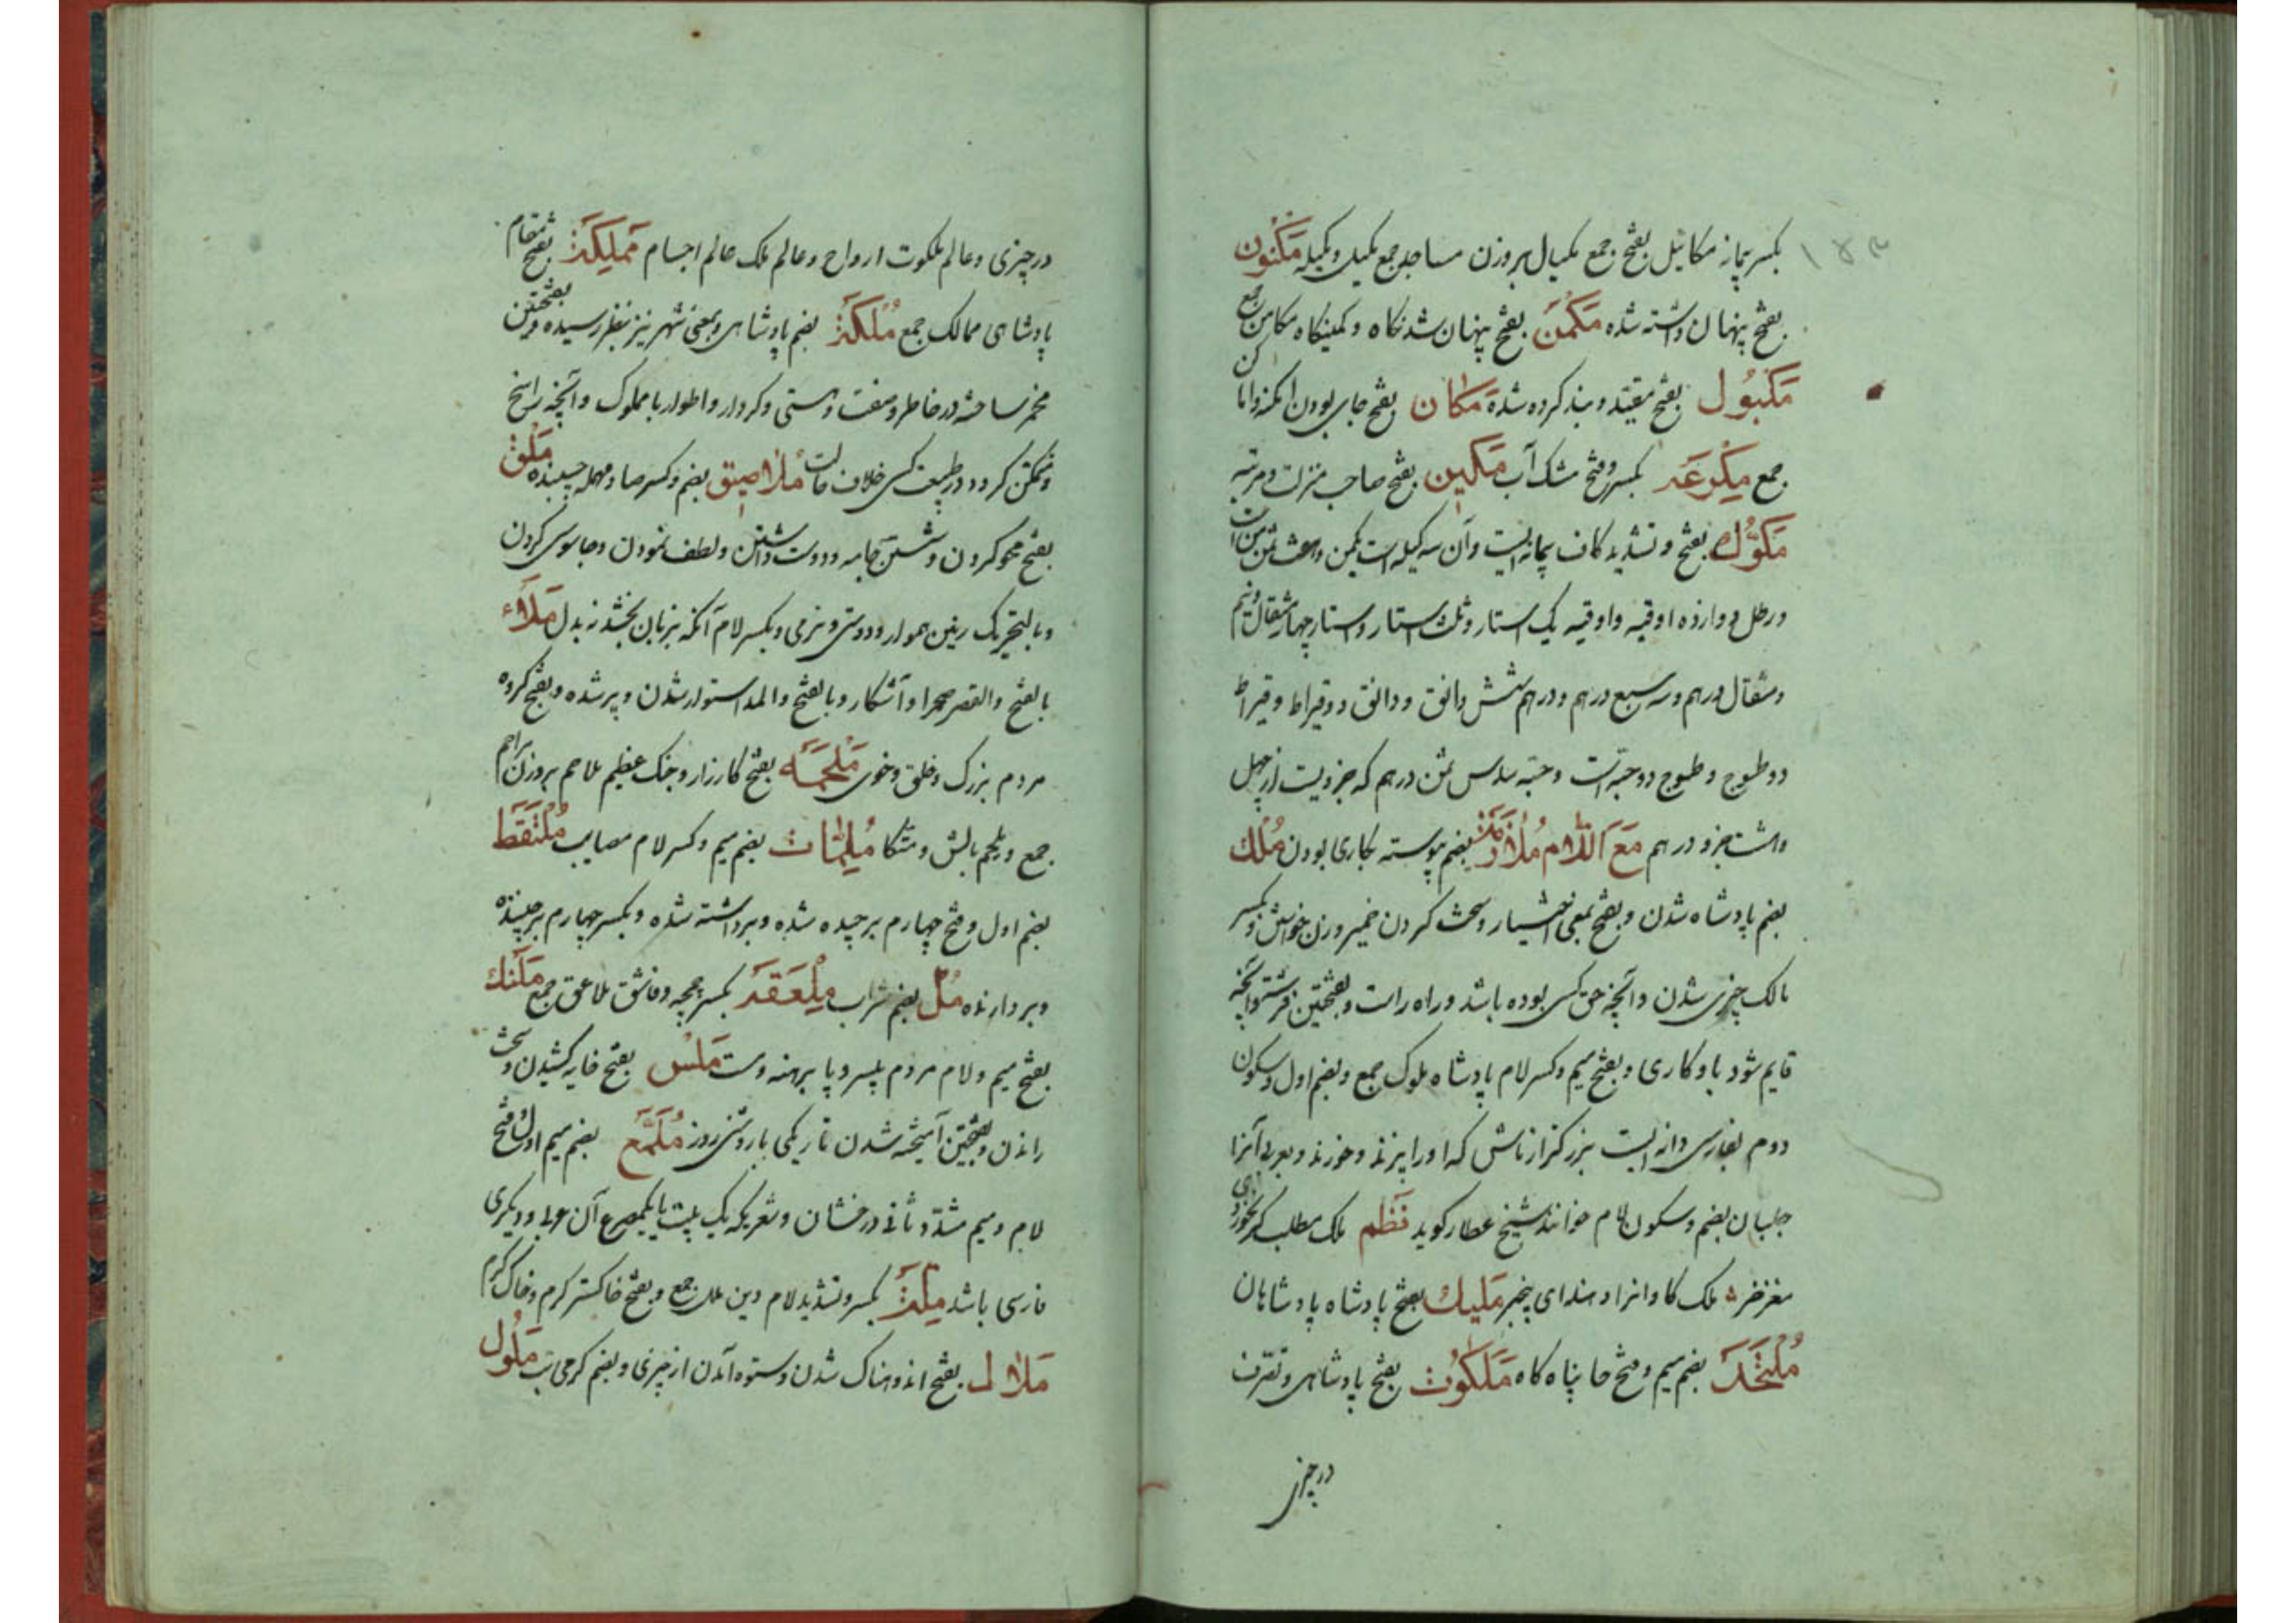 بکسر پیمانه مکائیل بفتح جمع مکیال بروزن مساجد جمع مکیل و مکیله مَکنُون
بفتح پنهان داشته شده مَکمَن بفتح پنهان شدنکاه و کمینکاه مکامن جمع
مَکبُول بفتح مقید و بند کرده شده مَکان بفتح جای بودن امکنه و اماکن
جمع مِکرَعَه بکسر و فتح مشک آب مَکین بفتح صاحب منزلت و مرتبه
مَکّوُك بفتح و تشدید کاف پیمانه ایست وآن سه کیله است یکمن و من است
و رطل دوازده اوقیه و اوقیه یک استار و ثلث استار و استار چهار مثقال و نیم
و مثقال درهم و سه سبع درهم و درهم شش دانق و دانق دو قیراط و قیراط
دو طسوج و طسوج دو حبه است و حبه سدس ثمن درهم که جزویست از چهل
و هشت جزو درهم مَعَ اللّام مُلازَمَة بضم پیوسته بکاری بودن مُلك
بضم پادشاه شدن و بفتح بمعنی اختیار و سخت کردن خمیر و زن خواستن و بکسر
مالک چیزی شدن و آنچه حق کسی بوده باشد و راه راست و بفتحتین فرشته و آنچه
قایم شود باو کاری و بفتح میم و کسر لام پادشاه ملوک جمع و بضم اول و سکون
دوم بفارسی دانه ایست بزرکتر از ماش که اورا پزند و خورند و بعربی آنرا
جلبان بضم و سکون لام خوانند شیخ عطار کوید نَظم ملک مطلب کر نخوردی
مغز خر ملک کاوانرا دهند ای بیخبر مَلیك بفتح پادشاه پادشاهان
مُلتَحَد بضم میم و فتح حا پناه کاه مَلَکُوت بفتح پادشاهی و تصرف
در چیزی
در چیزی و عالم ملکوت ارواح و عالم ملک عالم اجسام مَملِکَة بفتح مقام
پادشاهی ممالک جمع مُلکَة بضم پادشاهی و بمعنی شهر نیز بنظر رسیده و بفتحتین
مخمر ساخته در خاطر و صفت و هستی و کردار و اطوار با مملوک و آنچه راسخ
و متمکن کردد در طبیعت کسی خلاف حالت مُلاصِق بضم و کسر صاد مهمله چسبنده مَلق
بفتح محو کردن و شستن جامه و دوست داشتن و لطف نمودن و جاسوسی کردن
و بالتحریک زمین هموار و دوستی و نرمی و بکسر لام آنکه بزبان بخشد نه بدل مَلاء
بالفتح والقصر صحرا و آشکار و بالفتح والمد استوار شدن و پر شده و بفتح کروه
مردم بزرک و خلق و خوی مَلحَمَه بفتح کارزار و جنک عظیم ملاحم بروزن براهم
جمع و بلجم بالش و متکا مُلِمّات بضم میم و کسر لام مصایب مُلتَقَط
بضم اول و فتح چهارم برچیده شده و برداشته شده و بکسر چهارم برچیننده
و بردارنده مُل بضم شراب مِلعَقَه بکسر چمچه و قاشق ملاعق جمع مَلَنك
بفتح میم و لام مردم بیسر و پا برهنه و مست مَلس بفتح خایه کشیدن و سخت
راندن و بفتحتین آمیخته شدن تاریکی با روشنی روز مُلَمَّع بضم میم اول و فتح
لام و میم مشدد ثانی درخشان و شعری که یک بیت یا یکمصرع آن عربی و دیکری
فارسی باشد مِلَّة بکسر و تشدید لام دین ملل جمع و بفتح خاکستر کرم و خاک کرم
مَلال بفتح اندوهناک شدن و ستوه آمدن از چیزی و بضم کرمی تب مَلُول